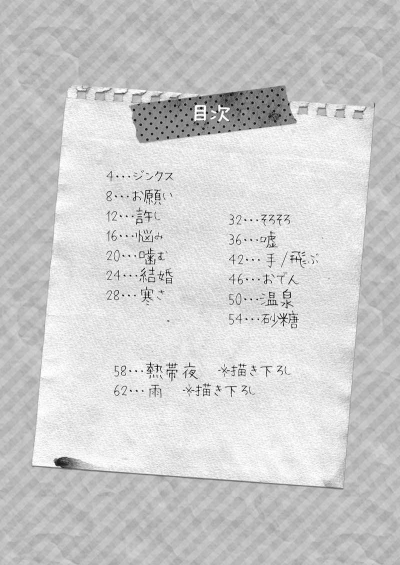 目次
4…ジンクス
8…お願い
12…許し
16…悩み
20…噛む
24…結婚
28…寒さ
32…そろそろ
36…嘘
42…手/飛ぶ
46…おでん
50…温泉
54…砂糖
58…熱帯夜 ※描き下ろし
62…雨 ※描き下ろし